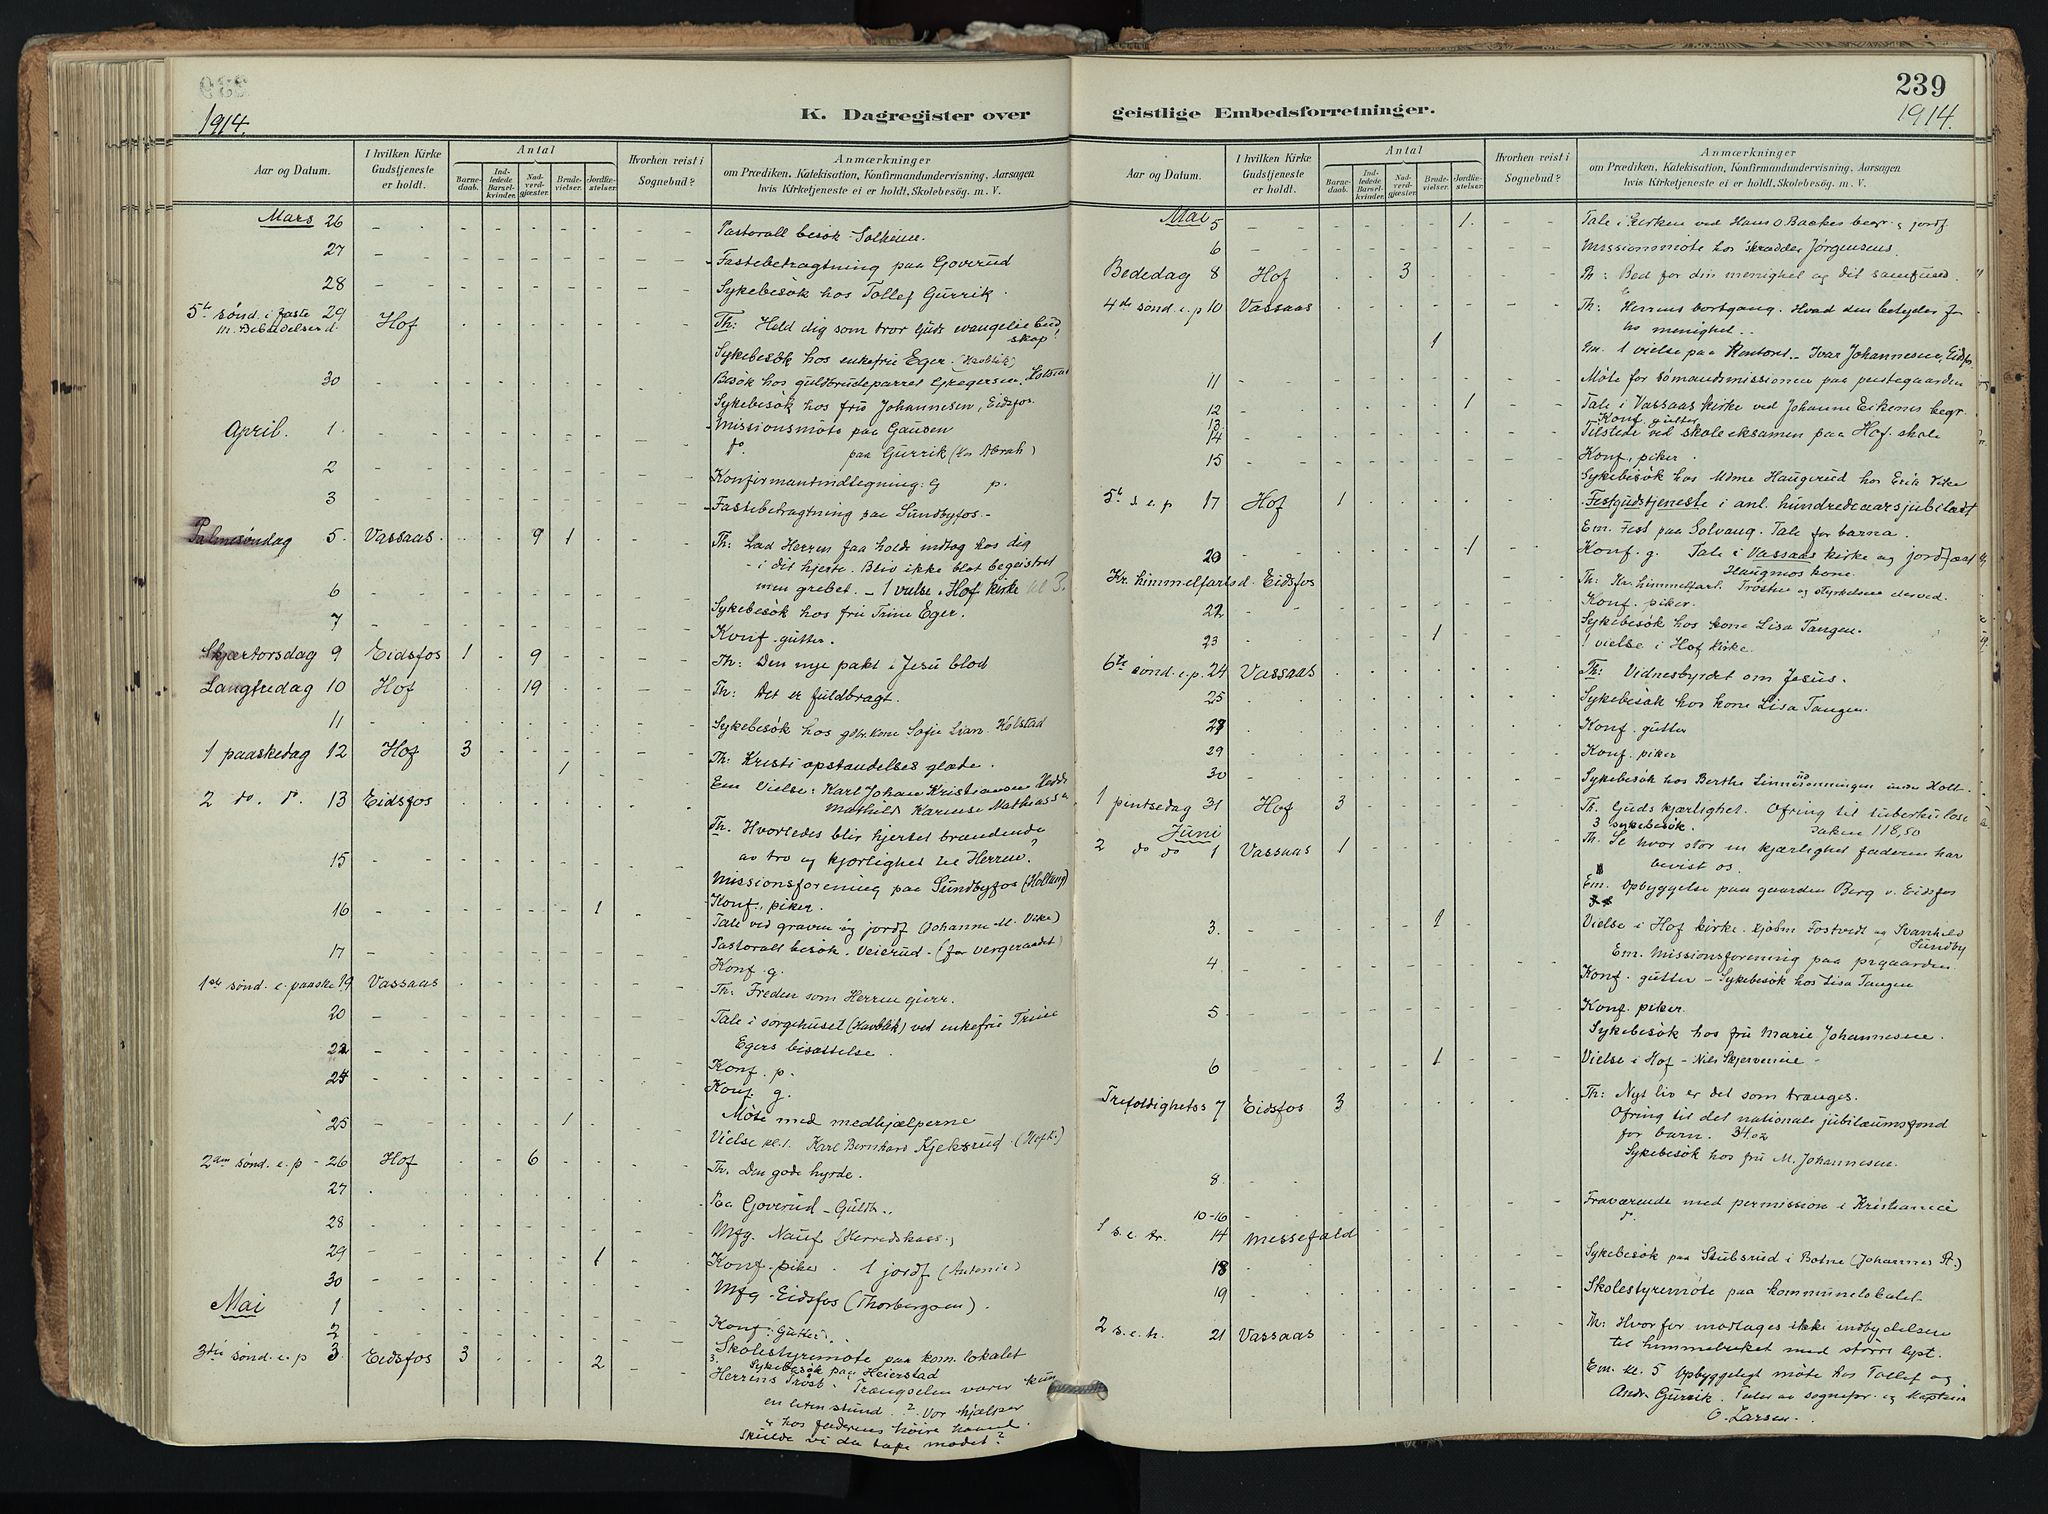 239
1914.
1914.
K. Dagregister over
geistlige Embedsforretninger.
Aar og Datum.
I hvilken Kirke Gudstjeneste er holdt.
Antal
Barnedaab.
Indledede Barselkvinder.
Nadverdgjester.
Brudevielser.
Jordfæstelser.
Hvorhen reist i Sognebud?
Anmærkninger
om Prædiken, Katekisation, Konfirmandundervisning, Aarsagen
hvis Kirketjeneste ei er holdt, Skolebesøg. m. V.
Mars 26 Pastoralt besök Solheim.
27 Fastebetragtning paa Goverud
28 Sykebesök hos Tollef Gurrik.
5te sønd. i faste 29 Hof Th: Hold dig som tror Guds evangelie bud,
m. Bebudelsesd. skap
Sykebesök hos enkefru Eger. (Havblik)
30 Besök hos guldbrudeparret Gregersen.
Sykebesök hos fru Johannesen, Eidsfos.
April. 1 Missionsmöte paa Gausen
do. paa Gurrik (hos Abrah)
2 Konfirmantindtegning: G p.
3 Fastebetragtning paa Sundbyfos -
Palmesøndag 5 Vassaas 9 1 Th: Lad Herren faa holde indtog hos dig
- i dit hjerte. Bliv ikke blot begeistret
6 men grebet. - 1 vielse i Hof kirke kl 3.
Sykebesök hos fru Trine Eger.
7 Konf. gutter.
Skjærtorsdag 9 Eidsfos 1 9 Th: Den nye pakt i Jesu blod
Langfredag 10 Hof 19 Th: Det er fuldbragt.
11 Sykebesök hos Sofie Kolstad
1 paaskedag 12 Hof 3 Th: Kristi opstandelses glæde.
1 Em Vielse: Karl Johan Kristiansen
2 do. do. 13 Eidsfos Mathilde Karense Mathiassen
Th. Hvorledes blir hjertet brændende
15 av tro og kjærlighet til Herren?
Missionsforening paa Sundbyfos (Holtung)
16 1 Konf. piker.
Tale ved graven og jordf (Johanne M. Vike)
17 Pastoralt besök. Veierud - (for vergeraadet)
Konf. g.
1ste sønd. e. paaske 19 Vassaas Th: Freden som Herren givr.
20 Tale i sorgehuset (Havblik) ved enkefru Trine
Egers bisættelse.
22 Konf. p.
24 Konf. g.
25 1 Möte med medhjælperne
Vielse kl. 1. Karl Bernhard Kjeksrud. (Hof k.)
2den sønd. e. p - 26 Hof 6 Th. Den gode hyrde.
27 Paa Goverud - Guldh..
28 Mfg. Nauf (Herredskass.)
29 1 Konf. piker. 1 jordf (Antonie)
30 Mfg - Eidsfos (Thorbergsen).
Mai 1
2 Konf: Gutter.
3die sønd. e. p 3. Eidsfos 3 2 Skolestyremöte paa kom. lokalet
3. Sykebesök paa Heierstad
Herrens Tröst - Trængselen varer kun
en liten stund. ? Vor hjælper
er hos faderens höire haand.
Skulde vi da tape modet?
Aar og Datum.
I hvilken Kirke Gudstjeneste er holdt.
Antal
Barnedaab.
Indledede Barselkvinder.
Nadverdgjester.
Brudevielser.
Jordfæstelser.
Hvorhen reist i Sognebud?
Anmærkninger
om Prædiken, Katekisation, Konfirmandundervisning, Aarsagen
hvis Kirketjeneste ei er holdt, Skolebesøg. m. V.
Mai 5 1. Tale i kirken ved Hans O Baakes begr. & jordf.
6 Missionsmöte hos skrædder Jørgensens
Bededag 8 Hof 3 Th: Bed for din menighet og dit samfund.
4de sønd. e. p 10 Vassaas Th: Herrens bortgang. Hvad den betyder for
hs menighet..
1 Em. 1 vielse paa Kontoret - Ivar Johannesen, Eidsfos
11 Möte for sömandsmissionen paa prestegaarden
12 1 Tale i Vassaas kirke ved Johanne Eikenes begr.
13 Konf. gutter
14 Tilstede ved skoleeksamen paa Hof. skole
15 Konf. piker.
Sykebesök hos Mdme Haugerud hos Erik Vike
5te s. e. p 17 Hof 1 Festgudstjeneste i anl. hundredeaarsjubilæet
Em. Fest paa Solvang. Tale for barna.
20 1 Konf. g. Tale i Vassaas kirke og jordfæst
Haugmos kone.
Kr. himmelfartsd. Eidsfos Th: Kr. himmelfart. Trösten og styrkelsen derved.
22 Konf. piker.
Sykebesök hos kone Lisa Tangen.
23 1 1 vielse i Hof kirke.
6te sønd. e. p. 24 Vassaas Th: Vidnesbyrdet om Jesus.
25 Sykebesök hos kone Lisa Tangen.
28 Konf. gutter
29 Konf. piker
30 Sykebesök hos Berthe under Holt.
1 pintsedag 31 Hof 3 Th. Guds kjærlighet. Ofring til tuberkulose
3 sykebesök. saken 118,50
Juni
2 do do 1 Vassaas 1 Th. Se hvor stor en kjærlighet faderen har
bevist os.
Em. Opbyggelse paa gaarden Berg v. Eidsfos
3. 1 Vielse i Hof kirke. Fostvedt og Svanhild
Sundby
Em. Missionsforening paa prgaarden.
4 Konf. gutter - Sykebesök hos Lisa Tangen
5 Konf. piker.
Sykebesök hos fru Marie Johannesen.
6 1 Vielse i Hof - Nils Skjerverne -
Trefoldighetss 7 Eidsfos 3 Th: Nyt liv er det som trænges.
Ofring til det nationale jubilæumsfond
for barn. 34.02
Sykebesök hos fru M. Johannesen.
8
10-16 Fraværende med permission i Kristiania
1 s. e. tr. 14 Messefald do.
18 Sykebesök paa Stubsrud i Botne (Johannes St.)
19 Skolestyremöte paa kommunelokalet
2 s. e. tr. 21 Vassaas Th: Hvorfor modtages ikke indbydelsen
til himmeriket med större lyst.
Em. kl. 5 Opbyggeligt möte hos Tollef og
Andr. Gurrik. Taler av sognepr. og Kaptein
O. Larsen.